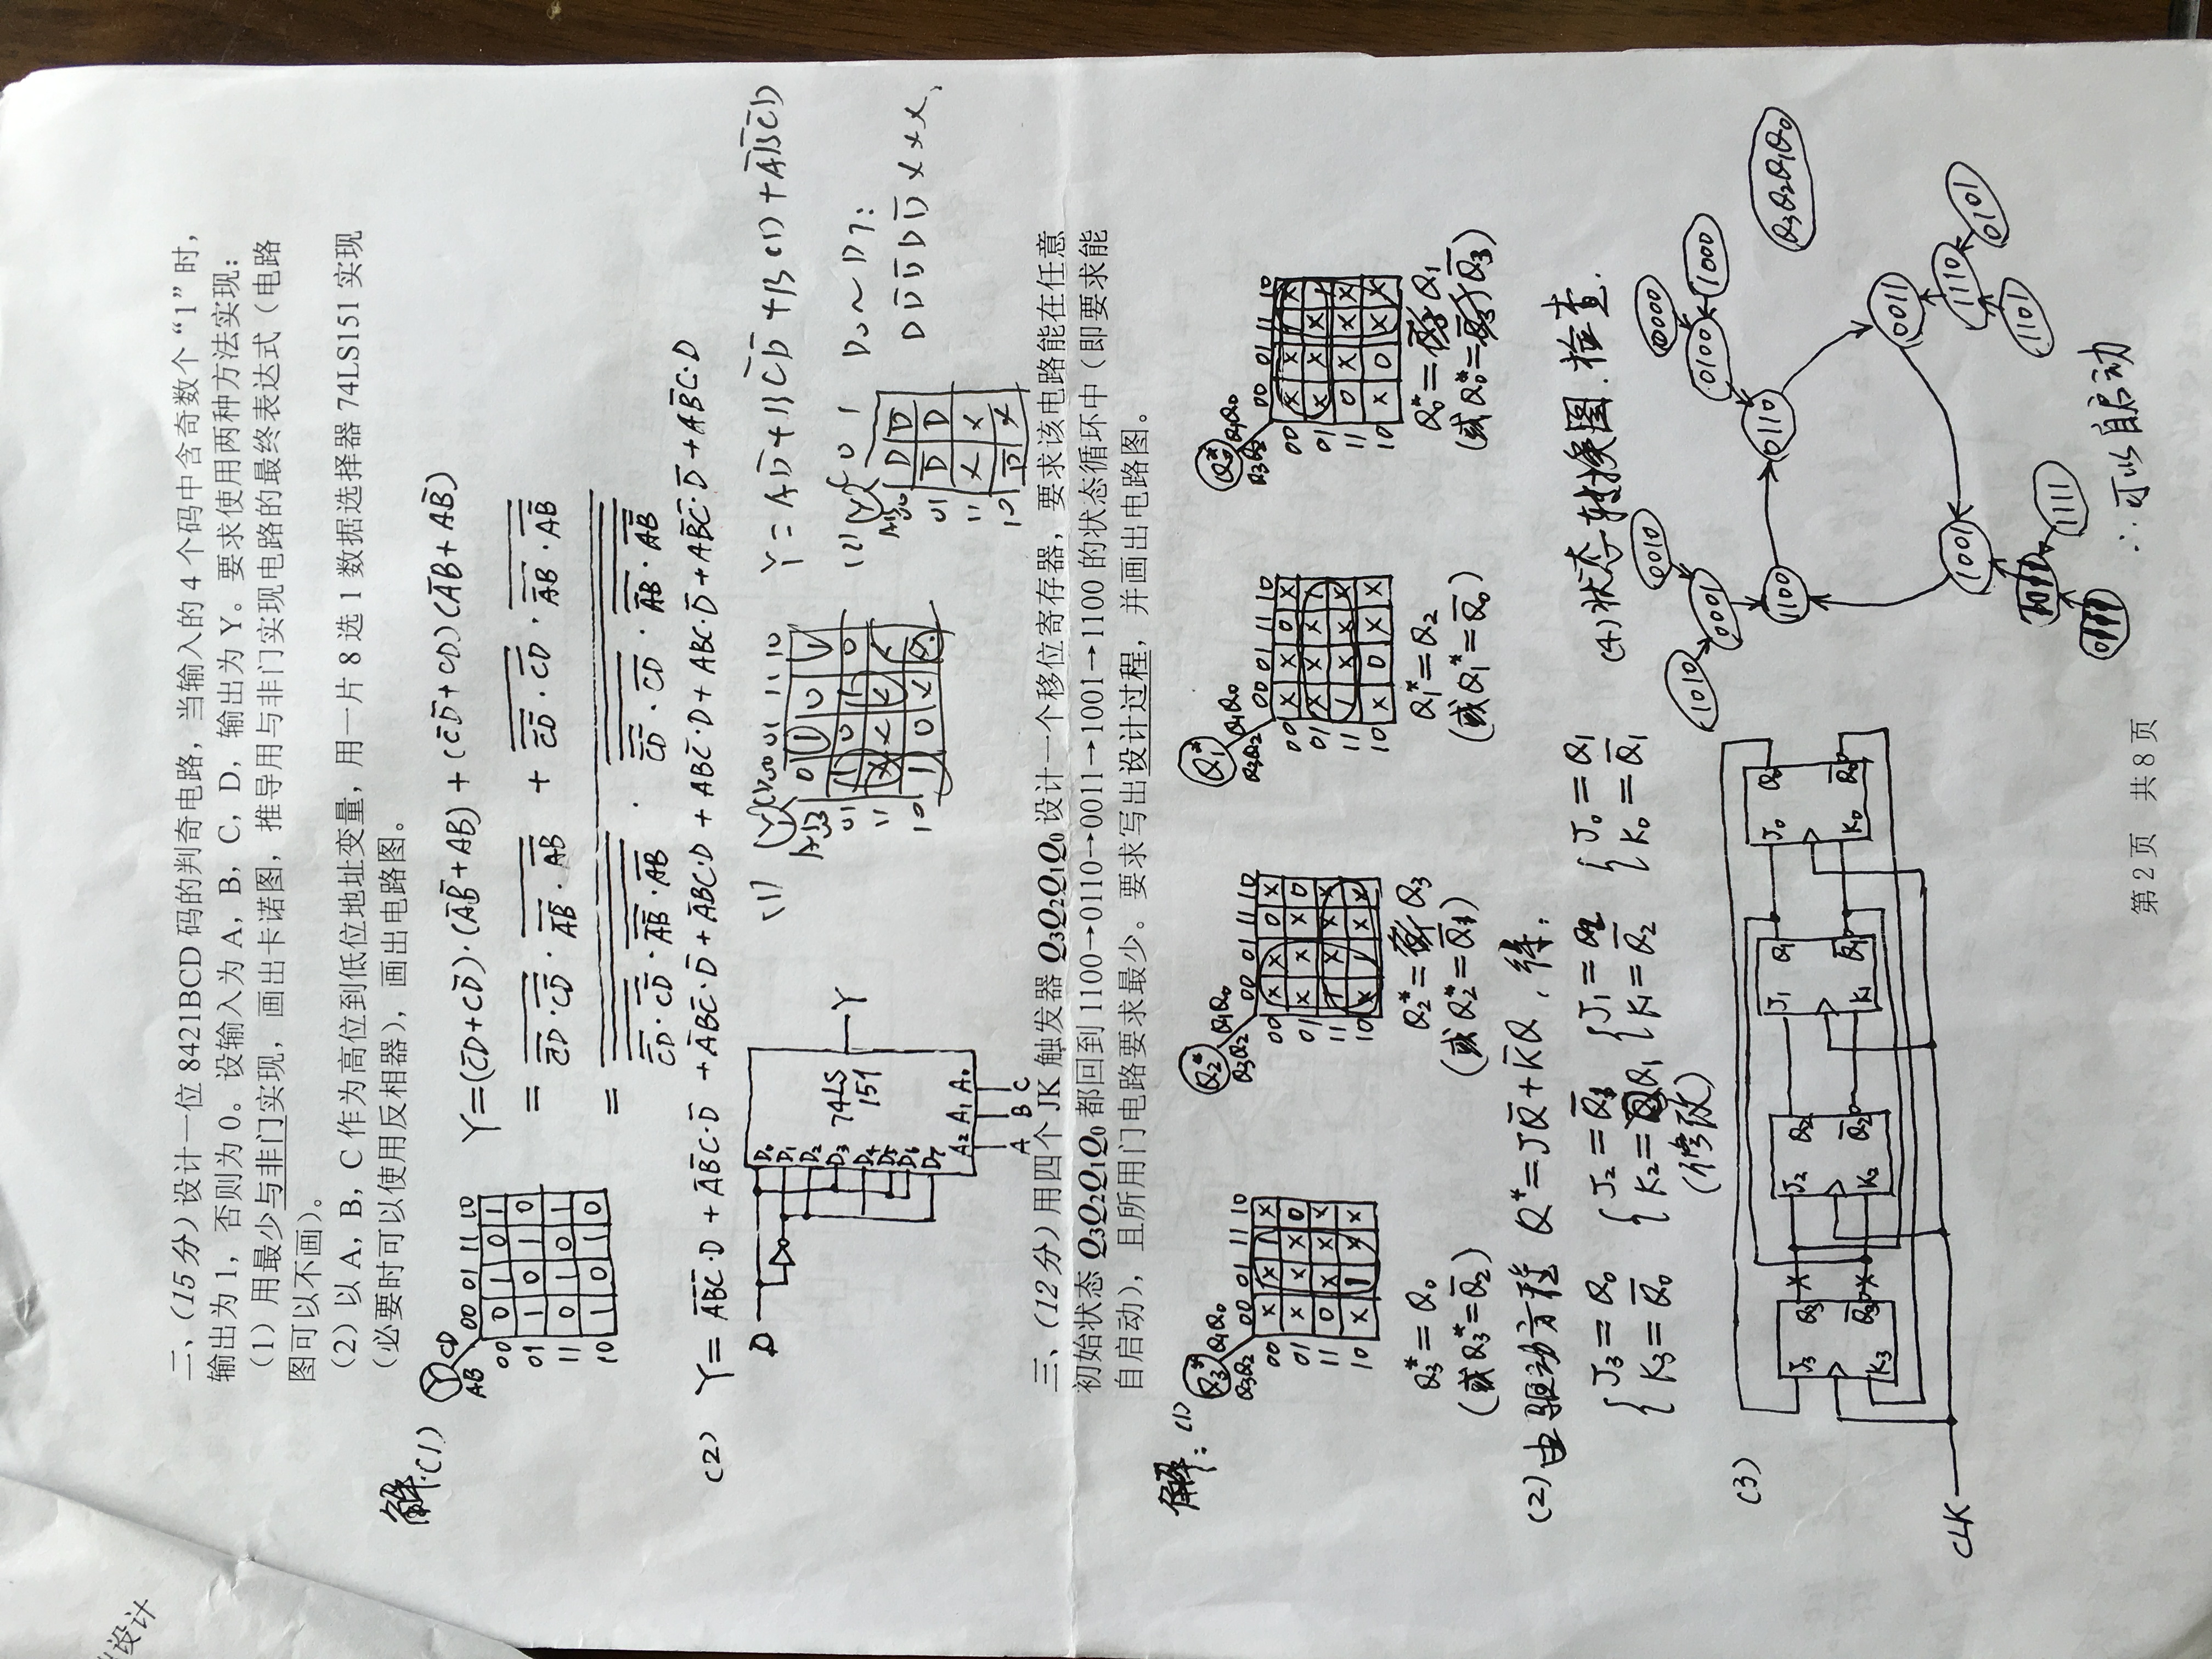 出设计
二、(15分)设计一位 8421BCD 码的判奇电路，当输入的 4 个码中含奇数个“1”时，
输出为 1，否则为 0。设输入为 A，B，C，D，输出为 Y。要求使用两种方法实现：
（1）用最少与非门实现，画出卡诺图，推导用与非门实现电路的最终表达式（电路
图可以不画）。
（2）以 A，B，C 作为高位到低位地址变量，用一片 8 选 1 数据选择器 74LS151 实现
（必要时可以使用反相器），画出电路图。
解.(1)
Y CD
AB 00 01 11 10
00 0 1 0 1
01 1 0 1 0
11 0 1 0 1
10 1 0 1 0
Y=(C̅D+CD̅)·(A̅B̅+AB)+(C̅D̅+CD)(A̅B+AB̅)
(2) Y= A̅B̅C̅·D + A̅B̅C·D̅ + A̅BC̅·D̅ + A̅BC·D + ABC̅·D + ABC·D̅ + AB̅C̅·D̅ + AB̅C·D
D
D₀
D₁
D₂
D₃
D₄
D₅
D₆
D₇
74LS
151
Y
A₂ A₁ A₀
A B C
(1) Y CD 00 01 11 10
AB
00 0 1 0 1
01 1 0 1 0
11 × × × ×
10 1 0 × ×
Y = AD̅ + BC̅D̅ + BCD + A̅B̅C̅D
(2) Y C 0 1
AB
00 D D̅
01 D̅ D
11 × ×
10 D̅ ×
D₀~D₇:
D D̅ D̅ D D̅ × × ×
三、(12分)用四个 JK 触发器 Q₃Q₂Q₁Q₀ 设计一个移位寄存器，要求该电路能在任意
初始状态 Q₃Q₂Q₁Q₀ 都回到 1100→0110→0011→1001→1100 的状态循环中（即要求能
自启动），且所用门电路要求最少。要求写出设计过程，并画出电路图。
解：(1)
Q₃* Q₁Q₀
Q₃Q₂ 00 01 11 10
00 × × 1 ×
01 × × × 0
11 0 × × ×
10 × 1 × ×
Q₃*=Q₀
(或Q₃*=Q̅₂)
Q₂* Q₁Q₀
Q₃Q₂ 00 01 11 10
00 × × 0 ×
01 × × × 0
11 1 × × ×
10 × 1 × ×
Q₂*=Q₃
(或Q₂*=Q̅₁)
Q₁* Q₁Q₀
Q₃Q₂ 00 01 11 10
00 × × 0 ×
01 × × × 1
11 1 × × ×
10 × 0 × ×
Q₁*=Q₂
(或Q₁*=Q̅₀)
Q₀* Q₁Q₀
Q₃Q₂ 00 01 11 10
00 × × 1 ×
01 × × × 1
11 0 × × ×
10 × 0 × ×
Q₀*=Q₁
(或Q₀*=Q̅₃)
(2)由驱动方程 Q*=JQ̅+K̅Q，得：
J₃=Q₀ J₂=Q̅₁ J₁=Q₂ J₀=Q₁
K₃=Q̅₀ K₂=Q₁ K₁=Q̅₂ K₀=Q̅₁
(修改)
(3)
J₃ Q₃
K₃ Q̅₃
J₂ Q₂
K₂ Q̅₂
J₁ Q₁
K₁ Q̅₁
J₀ Q₀
K₀ Q̅₀
CLK
(4)状态转换图.检查.
0010
0000
1010
0001
0100
1000
1100
0110
Q₃Q₂Q₁Q₀
0011
1001
1110
0101
1101
1011
1111
∴可以自启动
第 2 页 共 8 页